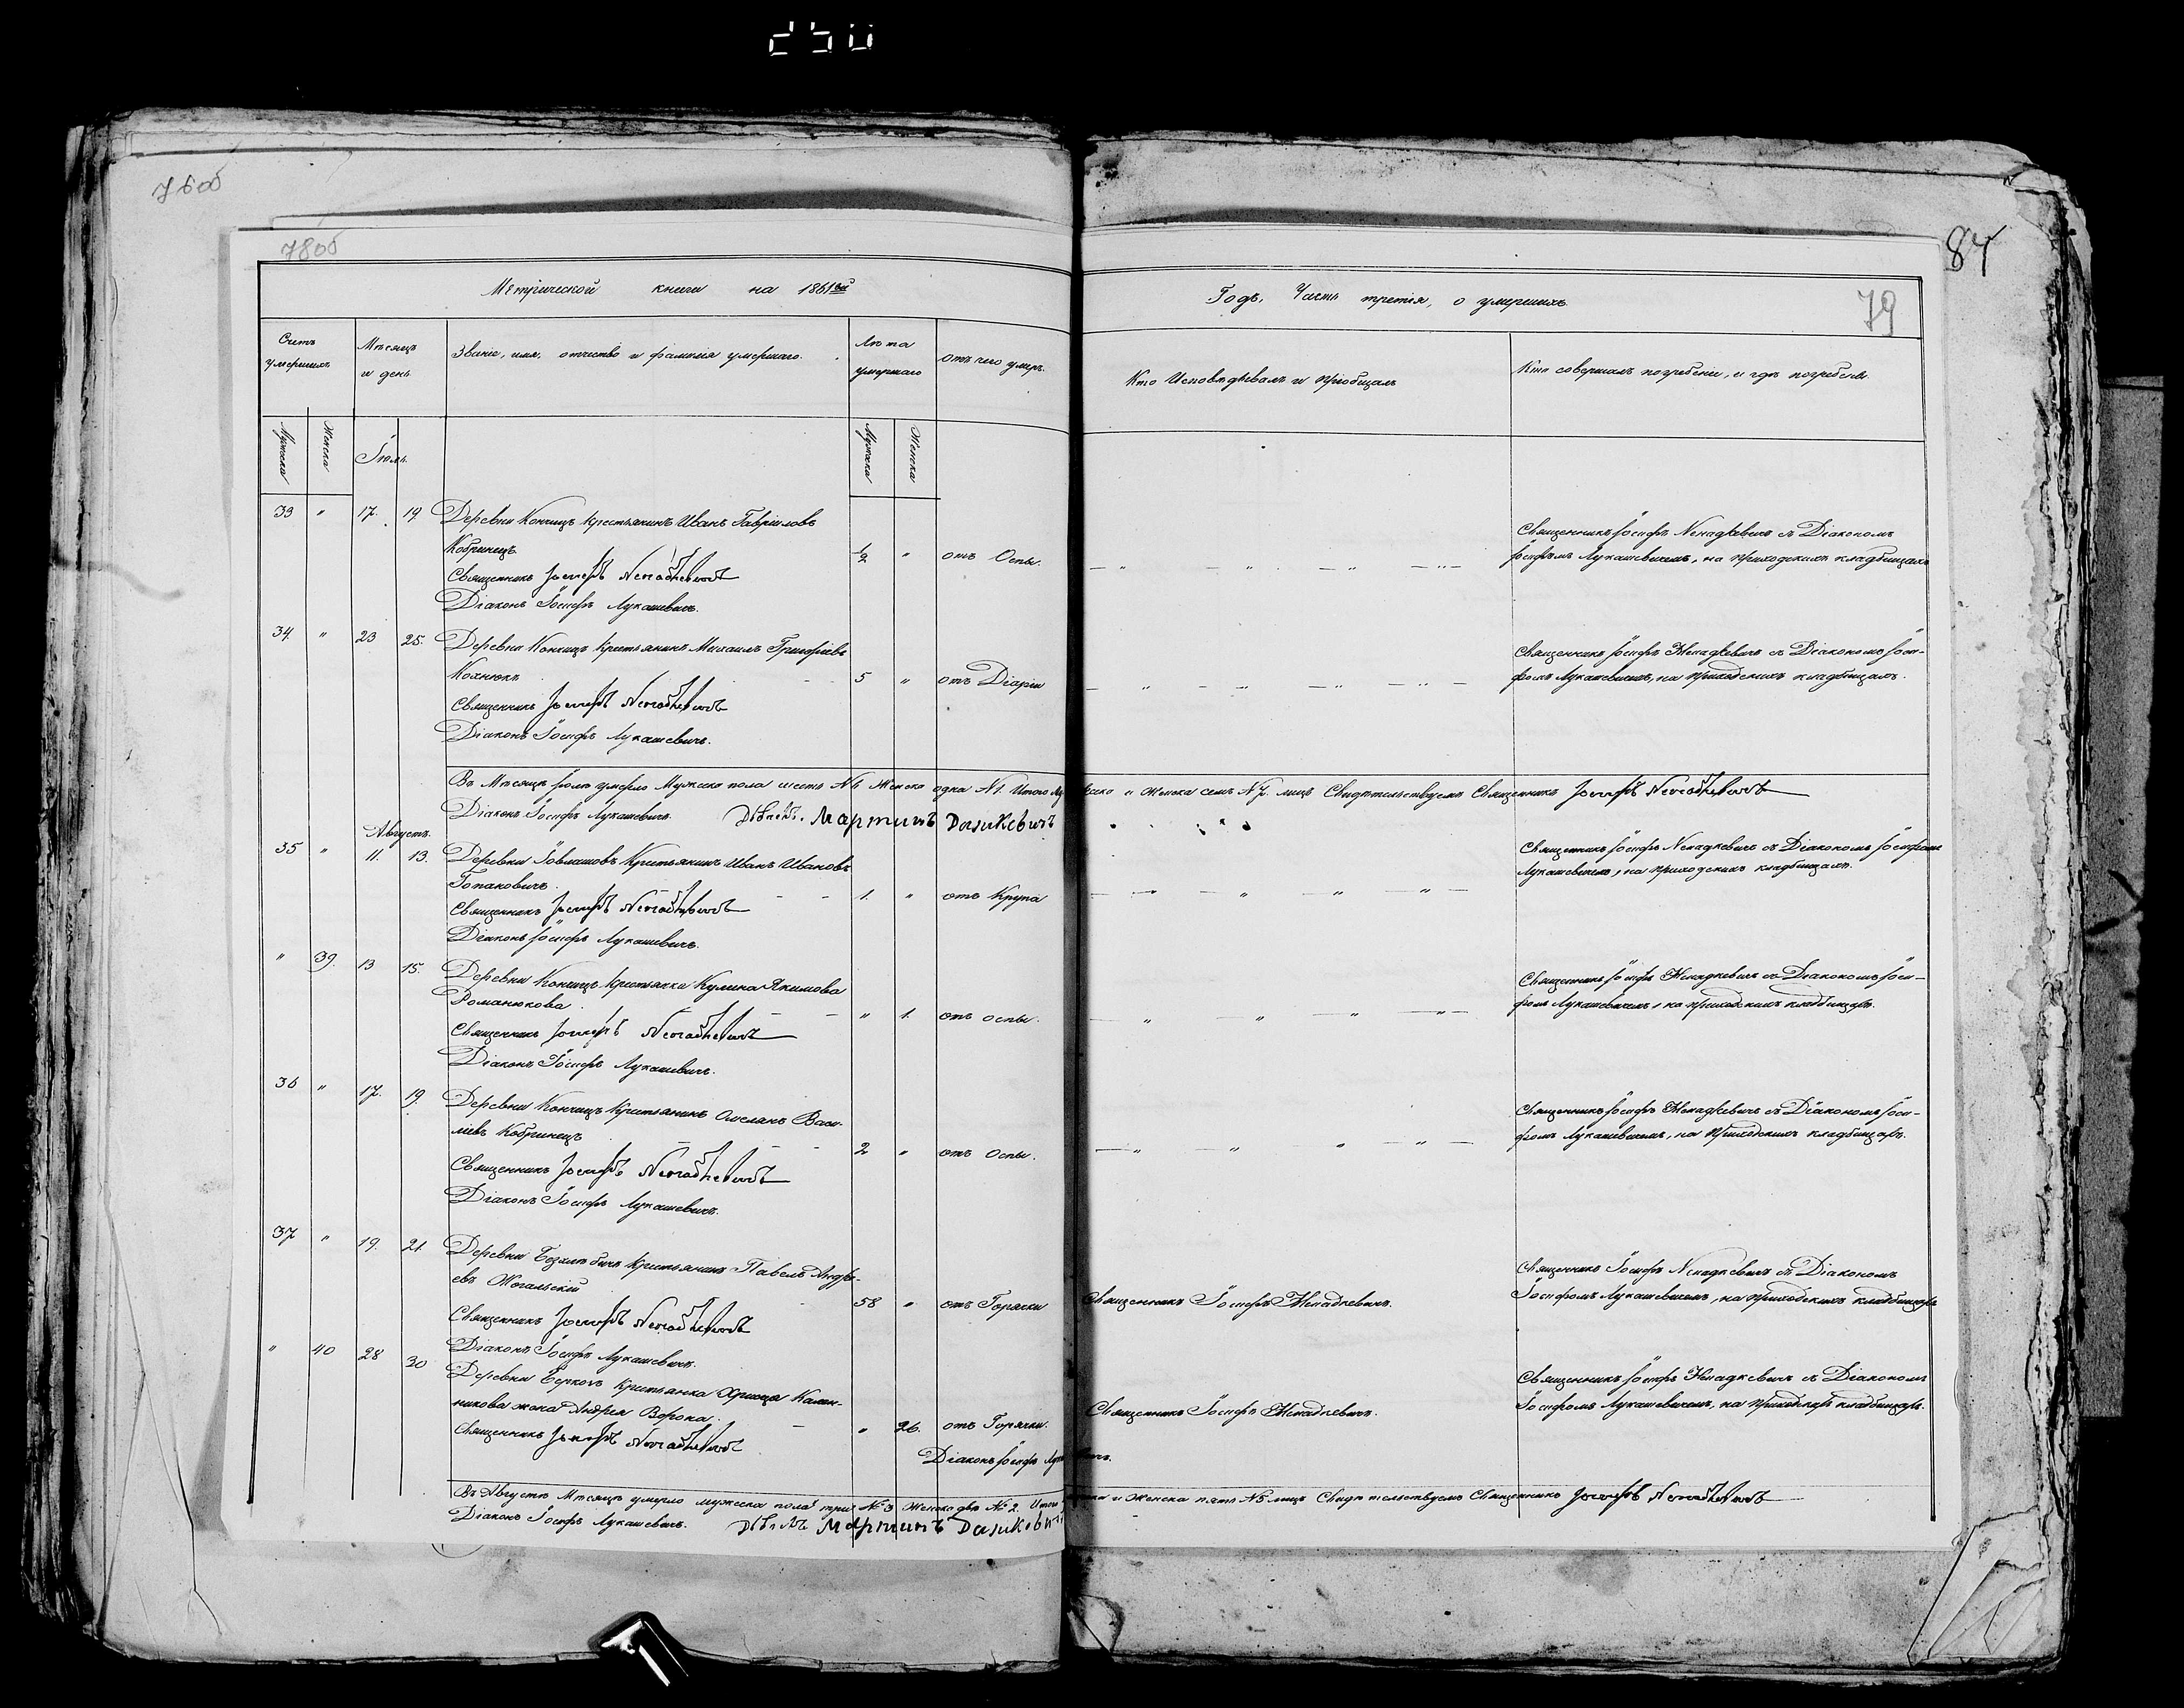 250
76об
78об
84
79
Метрической книги на 1861й
Годъ, Часть третія, о умершихъ
Счетъ умершихъ
Мѣсяцъ и день
Званіе, имя, отчество и фамилія умершаго.
Лѣта умершаго
отъ чего умеръ.
Кто Исповѣдывалъ и пріобщалъ
Кто совершалъ погребеніе, и гдѣ погребены.
Мужска
Женска
Іюль
Мужска
Женска
33 " 17. 19. Деревни Кончицъ крестьянинъ Иванъ Гавріиловъ
Кобринецъ 1/2 " отъ Оспы.
Священникъ Іосифъ Ненадкевичъ
Діаконъ Іосифъ Лукашевичъ.
Священникъ Іосифъ Ненадкевичъ съ Діакономъ
Іосифомъ Лукашевичемъ, на приходскихъ кладбищахъ
34. " 23 25. Деревни Кончицъ крестьянинъ Михаилъ Григоріевъ
Кохнюкъ 5 " отъ Діаріи
Священникъ Іосифъ Ненадкевичъ
Діаконъ Іосифъ Лукашевичъ.
Священникъ Іосифъ Ненадкевичъ съ Діакономъ Іоси-
фомъ Лукашевичемъ, на приходскихъ кладбищахъ.
Въ Мѣсяцѣ Іюлѣ умерло Мужеска пола шесть №6 Женска одна №1. Итого Мужеска и Женска семь №7. лицъ Свидѣтельствуемъ Священникъ Іосифъ Ненадкевичъ
Діаконъ Іосифъ Лукашевичъ. Дьячекъ Мартинъ Даликевичъ
Августъ.
35 " 11. 13. Деревни Крестьянинъ Иванъ Ивановъ
Гопановичъ 1. " отъ Крупа
Священникъ Іосифъ Ненадкевичъ
Діаконъ Іосифъ Лукашевичъ.
Священникъ Іосифъ Ненадкевичъ съ Діакономъ Іосифомъ
Лукашевичемъ, на приходскихъ кладбищахъ.
" 39. 13 15. Деревни Кончицъ крестьянка Кулина Якимова
Романюкова. " 1. отъ оспы.
Священникъ Іосифъ Ненадкевичъ
Діаконъ Іосифъ Лукашевичъ.
Священникъ Іосифъ Ненадкевичъ съ Діакономъ Іоси-
фомъ Лукашевичемъ, на приходскихъ кладбищахъ.
36 " 17. 19. Деревни Кончицъ Крестьянинъ Омелянъ Васи-
ліевъ Кобринецъ 2 " отъ Оспы.
Священникъ Іосифъ Ненадкевичъ
Діаконъ Іосифъ Лукашевичъ.
Священникъ Іосифъ Ненадкевичъ съ Діакономъ Іоси-
фомъ Лукашевичемъ, на приходскихъ кладбищахъ.
37 " 19. 21. Деревни Крестьянинъ Павелъ Андре-
евъ Жогальскій 58 " отъ Горячки
Священникъ Іосифъ Ненадкевичъ
Діаконъ Іосифъ Лукашевичъ.
Священникъ Іосифъ Ненадкевичъ.
Священникъ Іосифъ Ненадкевичъ съ Діакономъ
Іосифомъ Лукашевичемъ, на приходскихъ кладбищахъ
" 40 28 30 Деревни Берковъ крестьянка
жена Андрея Ворона. " 26. отъ Горячки.
Священникъ Іосифъ Ненадкевичъ
Діаконъ Іосифъ Лукашевичъ.
Священникъ Іосифъ Ненадкевичъ.
Священникъ Іосифъ Ненадкевичъ съ Діакономъ
Іосифомъ Лукашевичемъ, на приходскихъ кладбищахъ.
Въ Августѣ Мѣсяцѣ умерло мужеска пола три №3 Женска двѣ №2. Итого и Женска пять №5 лицъ Свидѣтельствуемъ Священникъ Іосифъ Ненадкевичъ
Діаконъ Іосифъ Лукашевичъ. Дьячекъ Мартинъ Даликевичъ